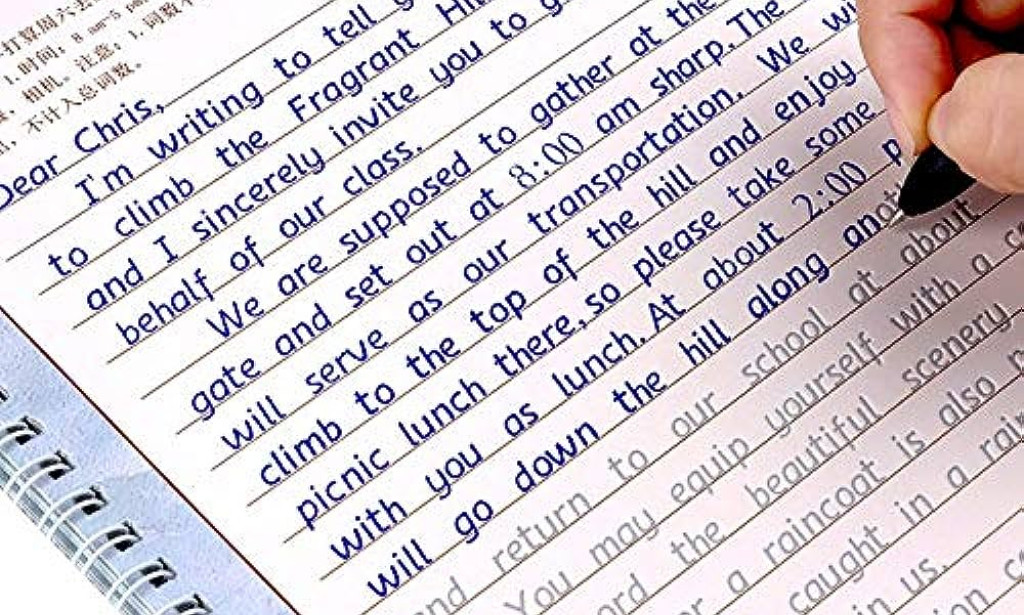 打算周六去
1.时间:8 am~5 pm
相机。注意:1.词数不
不计入总词数。
Dear Chris,
I'm writing to tell
to climb the Fragrant
and I sincerely invite you to
behalf of our class.
We are supposed to gather at the
gate and set out at 8:00 am sharp. The
will serve as our transportation. We
climb to the top of the hill and enjoy
picnic lunch there, so please take some
with you as lunch. At about 2:00
will go down the hill along
and return to our school at about
You may equip yourself with a
the beautiful scenery
a raincoat is also
caught in a
in us.